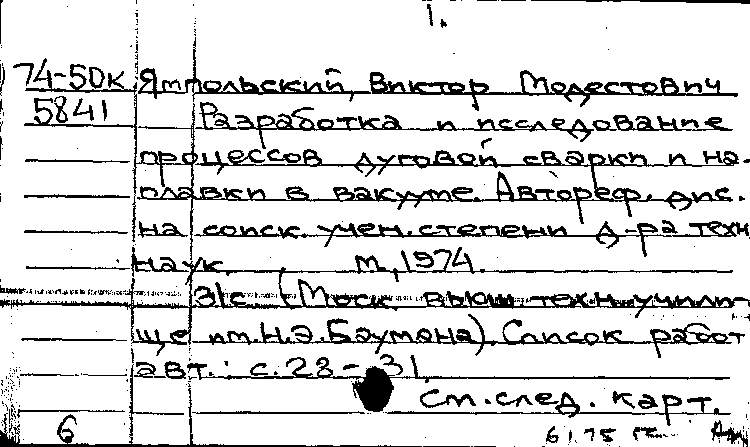 1.
74-50к Ямпольский, Виктор Модестович
5841 Разработка и исследование
процессов дуговой сварки и на-
плавки в вакууме. Автореф. дис.
на соиск. учен. степени д-ра техн
наук. М., 1974.
31с. (Моск высш техн училищ-
ще им. Н.Э. Баумана). Список работ
авт.: с. 28-31.
См. след. карт.
6 6 1.75